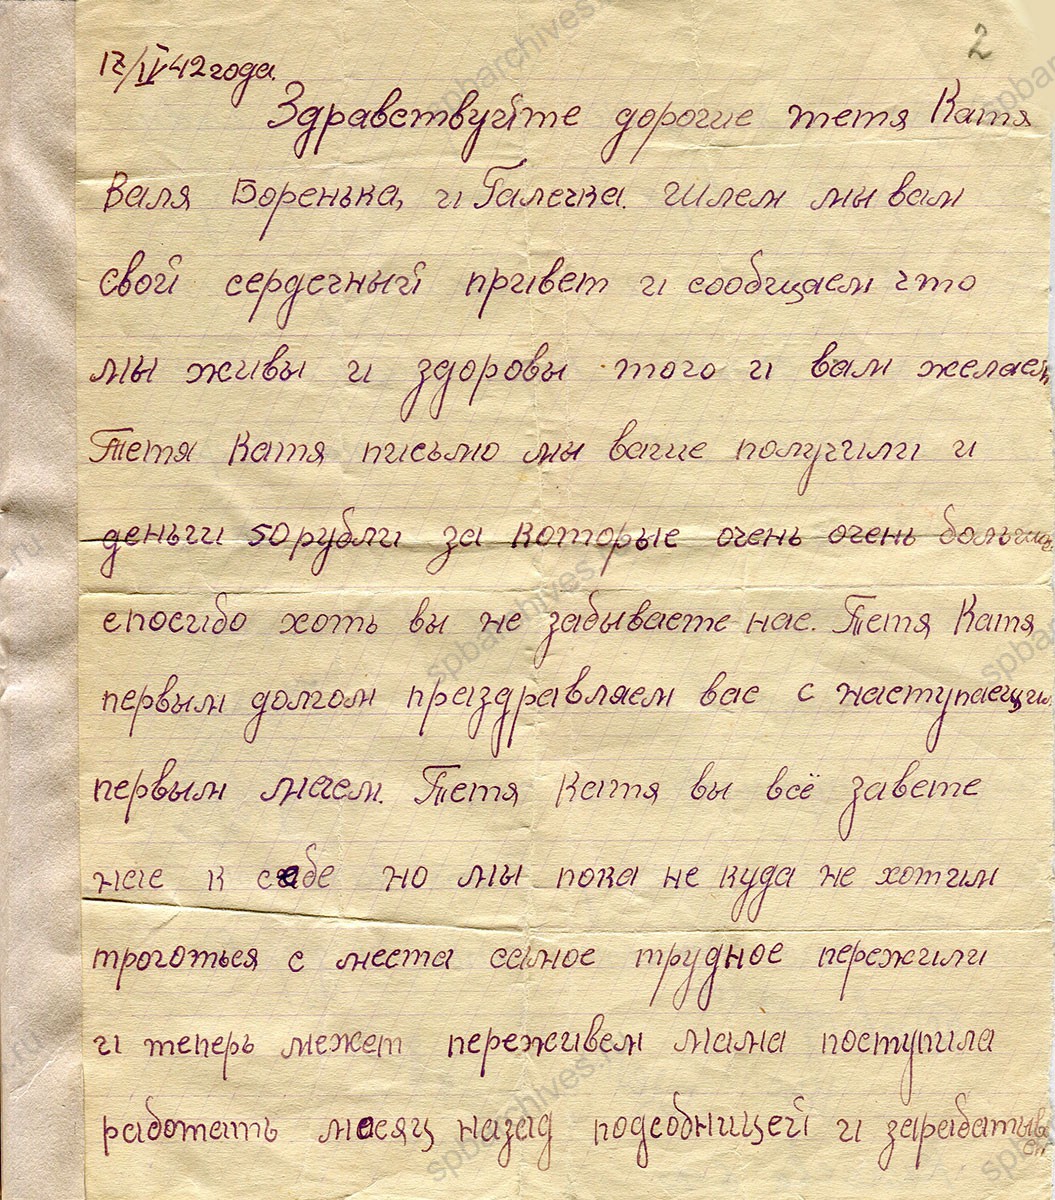 2
17/IV 42 года.
Здравствуйте дорогие тетя Катя
Валя Боренька, и Галечка. Шлем мы вам
свой сердечный привет и сообщаем что
мы живы и здоровы того и вам желаем
Тетя Катя письмо мы ваше получили и
деньги 50 рубли за которые очень очень большое
спосибо хоть вы не забываете нас. Тетя Катя
первым долгом праздравляем вас с наступаещим
первым маем. Тетя Катя вы всё завете
нас к себе но мы пока не куда не хотим
троготься с места самое трудное пережили
и теперь межет переживем мама поступила
работать месяц назад подсобницей и зарабатыва